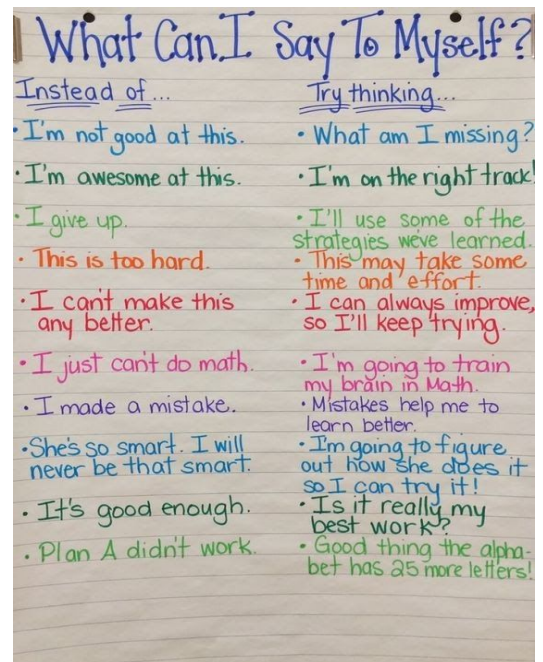 What Can I Say To Myself?
Instead of...
• I'm not good at this.
• I'm awesome at this.
• I give up.
• This is too hard.
• I can't make this
any better.
• I just can't do math.
• I made a mistake.
• She's so smart. I will
never be that smart.
• It's good enough.
• Plan A didn't work.
Try thinking...
• What am I missing?
• I'm on the right track!
• I'll use some of the
strategies we've learned.
• This may take some
time and effort.
• I can always improve,
so I'll keep trying.
• I'm going to train
my brain in Math.
• Mistakes help me to
learn better.
• I'm going to figure
out how she does it
so I can try it!
• Is it really my
best work?
• Good thing the alpha-
bet has 25 more letters!